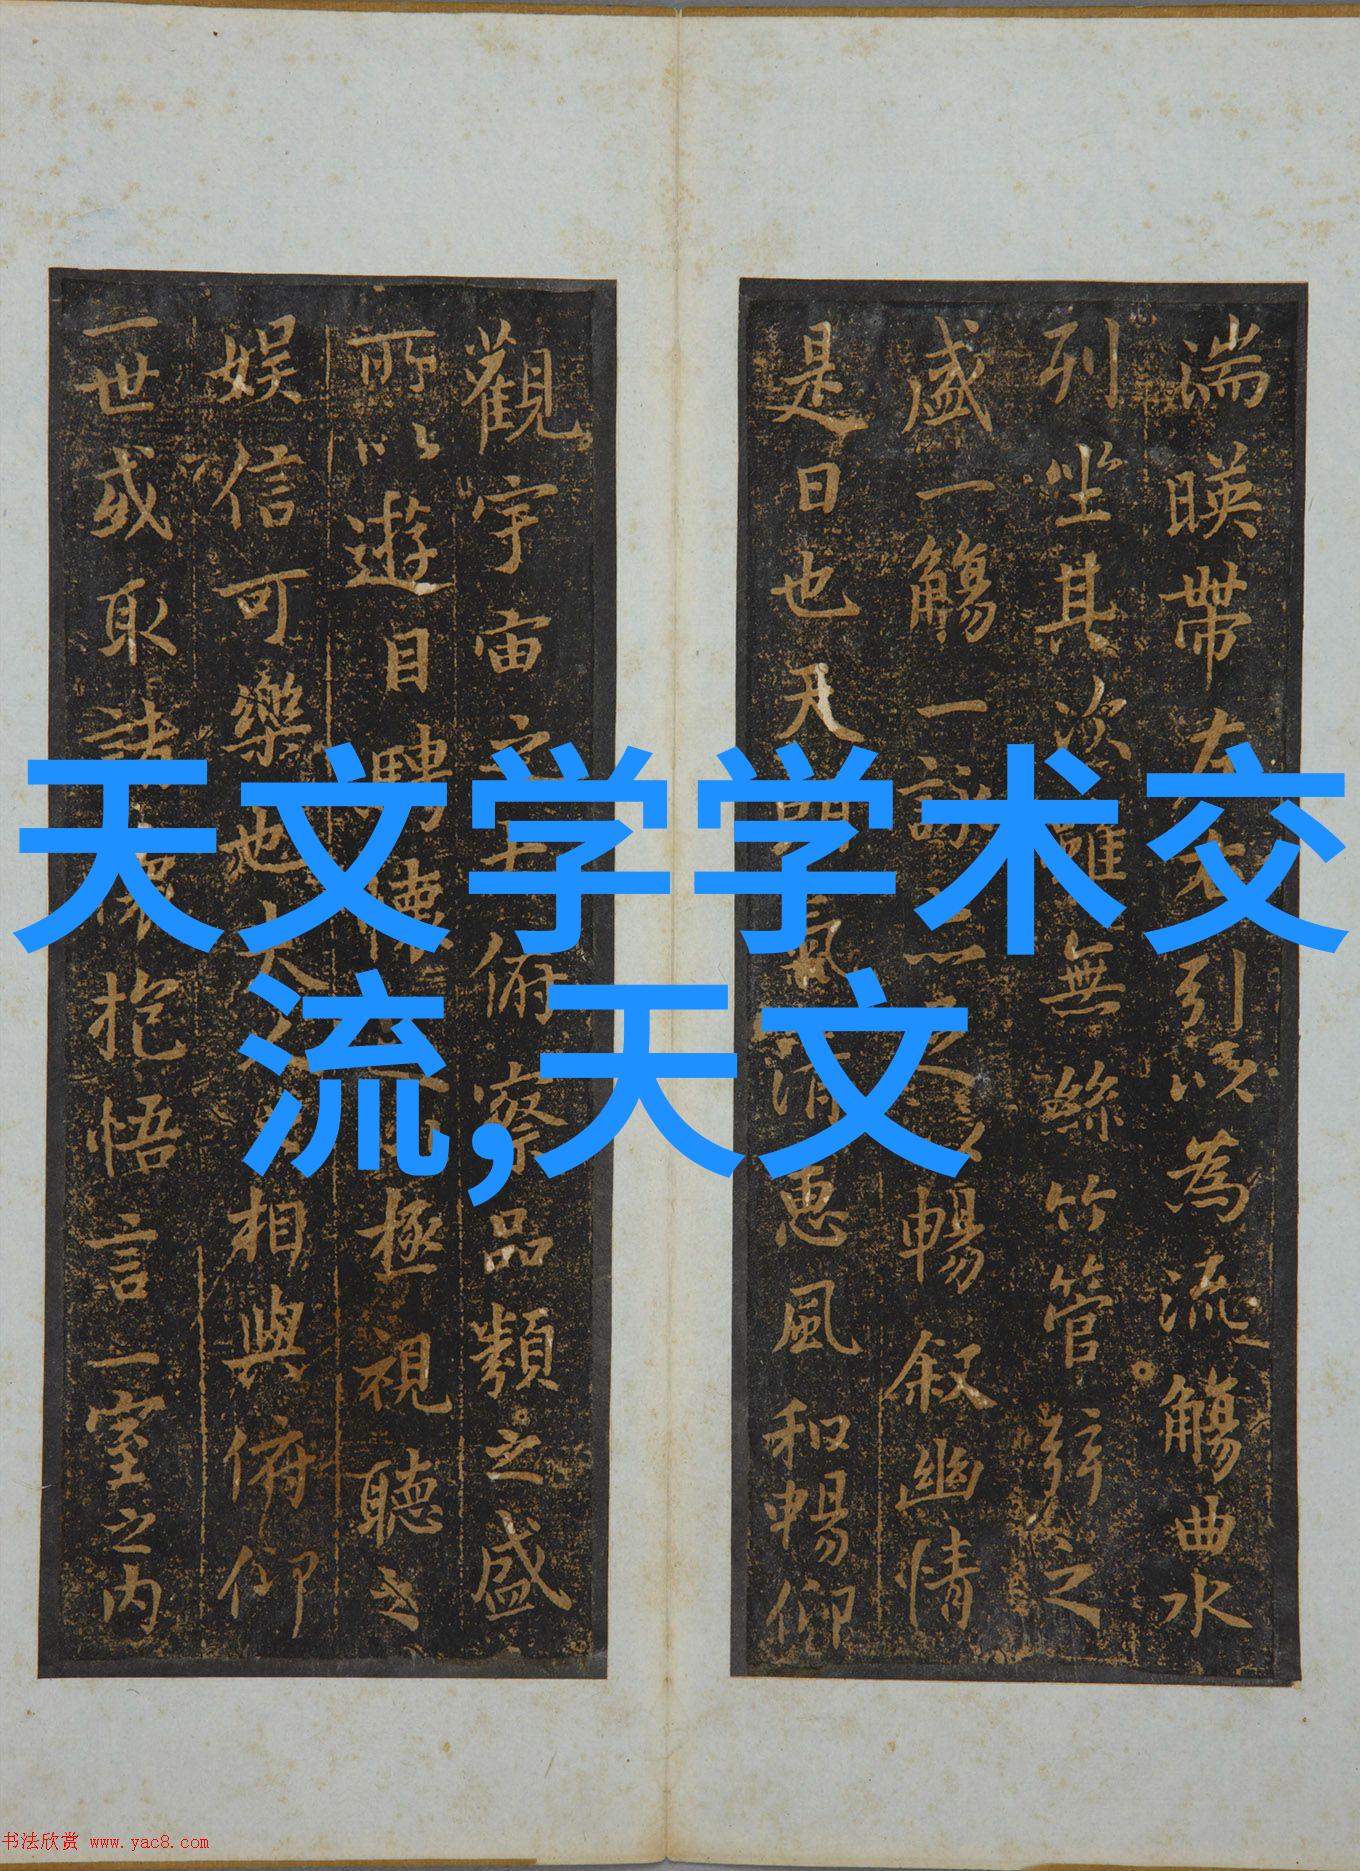 天文学学术交
流,天文
湍暎帶左右引以為流觴曲水
列坐其次雖無絲竹管弦之
盛一觴一詠暢叙幽情
是日也天朗氣清惠風和暢仰
觀宇宙之大俯察品類之盛
所以遊目騁懷極視聽之
娱信可樂也相與俯仰
一世或取諸懷抱悟言一室之内
书法欣赏 www.yac8.com